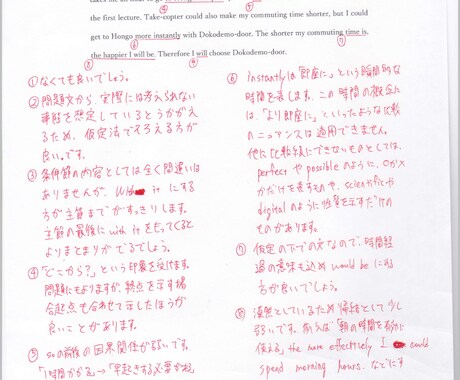 the first lecture. Take-copter could also make my commuting time shorter, but I could
④ ⑤
get to Hongo more instantly with Dokodemo-door. The shorter my commuting time is,
⑥ ⑦
the happier I will be. Therefore I will choose Dokodemo-door.
⑧ ⑨
①なくても良いでしょう。
②問題文から、実際には考えられない
事態を想定しているとうかがえ
るため、仮定法でそろえる方が
良いです。
③条件節の内容としては全く間違いは
ありませんが、With it にする
方が主節までがすっきりします。
主節の最後に with it をもってくると
よりまとまりがでるでしょう。
④「どこから?」という印象を受けます。
問題にもよりますが、終点を示す場
合起点も合わせて示したほうが
良いことがあります。
⑤ soの前後の因果関係が弱いです。
「1時間かかる」→「早起きする必要がある」
⑥ instantlyは「即座に」という瞬間的な
時間を表します。この時間の概念に
は、「より即座に」といったような比較
のニュアンスは適用できません。
他に比較級にできないものとしては、
perfect や possible のように、0か×
かだけを表すものや、scientific や
digital のように性質を示すだけの
ものがあります。
⑦ 仮定の下での文なので、時間経
過の意味も込め would be にする
方が良いでしょう。
⑧ 漠然としているため帰結として少し
弱いです。例えば「朝の時間を有効に
使える」the more effectively I could
spend morning hours. などにす